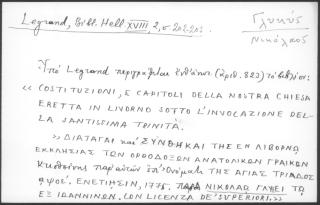 Legrand, Bibl. Hell XVIII, 2, σ 202-203.
Γλυκύς
Νικόλαος
Ὑπὸ Legrand περιγράφεται ἐνθάπερ (ἀριθ. 883) τὸ βιβλίον:
« COSTITUZIONI, E CAPITOLI DELLA NOSTRA CHIESA
ERETTA IN LIVORNO SOTTO L'INVOCAZIONE DEL-
LA SANTISSIMA TRINITÀ.
» ΔΙΑΤΑΓΑΙ καὶ ΣΥΝΘΗΚΑΙ ΤΗΣ ΕΝ ΛΙΒΟΡΝΩ
ΕΚΚΛΗΣΙΑΣ ΤΩΝ ΟΡΘΟΔΟΞΩΝ ΑΝΑΤΟΛΙΚΩΝ ΓΡΑΙΚΩΝ
παρ' αὐτῶν ἐπ' Ὀνόματι ΤΗΣ ΑΓΙΑΣ ΤΡΙΑΔΟΣ
αψοε΄. ΕΝΕΤΙΗΣΙΝ, 1775. ΠΑΡΑ ΝΙΚΟΛΑΩ ΓΛΥΚΕΙ ΤΩ
ΕΞ ΙΩΑΝΝΙΝΩΝ. CON LICENZA DE' SUPERIORI. »